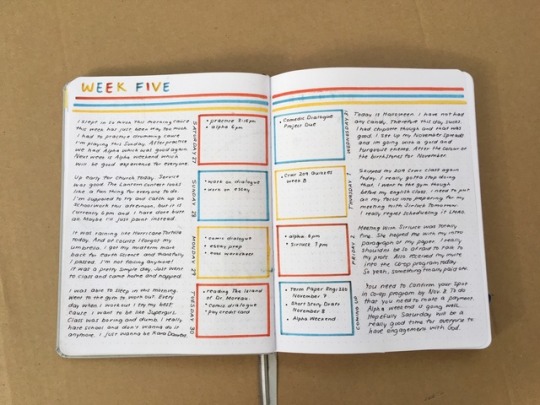 WEEK FIVE
I slept in so much this morning cause
this week has just been way too much
I had to practice drumming cause
I'm playing this Sunday. After practice
we had Alpha which was good again
Next week is Alpha weekend which
will be good experience for everyone
SATURDAY 27
• practice
• alpha 6pm
Up early for Church today. Service
was good. The Canteen Contest looks
like a fun thing for everyone to do.
I'm supposed to try and catch up on
schoolwork this afternoon, but it is
currently 6pm and I have done butt
all. Maybe I'll just paint instead
SUNDAY 28
• work on dialogue
• work on essay
It was raining like Hurricane Tortilla
today. And of course I forgot my
umbrella. I got my midterm mark
back for Earth Science and thankfully
I passed. I'm not failing anyway!
It was a pretty simple day. Just went
to class and came home and napped.
MONDAY 29
• comic dialogue
• essay prep
• worksheet
I was able to sleep in this morning.
Went to the gym to work out. Every
day when I workout I try my best
cause I want to be like Supergirl.
Class was boring and dumb. I really
hate school and don't wanna do it
anymore. I just wanna be Kara Danvers.
TUESDAY 30
• reading The Island
of Dr. Moreau
• comic dialogue
• pay credit card
• Comedic Dialogue
Project Due
WEDNESDAY 31
Today is Halloween. I have not had
any candy. Therefore this day sucks.
I had Chipotle though and that was
good. I set up my November spread
and I'm going with a gold and
turquoise theme. After the colour of
the birthstones for November.
• Cosc Quizzes
Week 8
THURSDAY 1
Skipped my class again
today. I really gotta stop doing
that. I went to the gym though
before my English class. I need to put
all my focus into preparing for my
meeting with Sirluck tomorrow.
I really regret scheduling it.
• alpha 6pm
• Sirluck 3pm
FRIDAY 2
Meeting with Sirluck was totally
fine. She helped me with my intro
paragraph of my paper. I really
shouldn't be so afraid to talk to
my profs. Also received my invite
into the Co-op program today.
So yeah, something finally
• Term Paper
November 7
• Short Story Draft
November 8
• Alpha Weekend
COMING UP
You need to confirm your spot
in Co-op program by Nov 8. To do
that you need to make a payment.
Alpha weekend is going well.
Hopefully Saturday will be a
really good time for everyone to
have engagement with God.